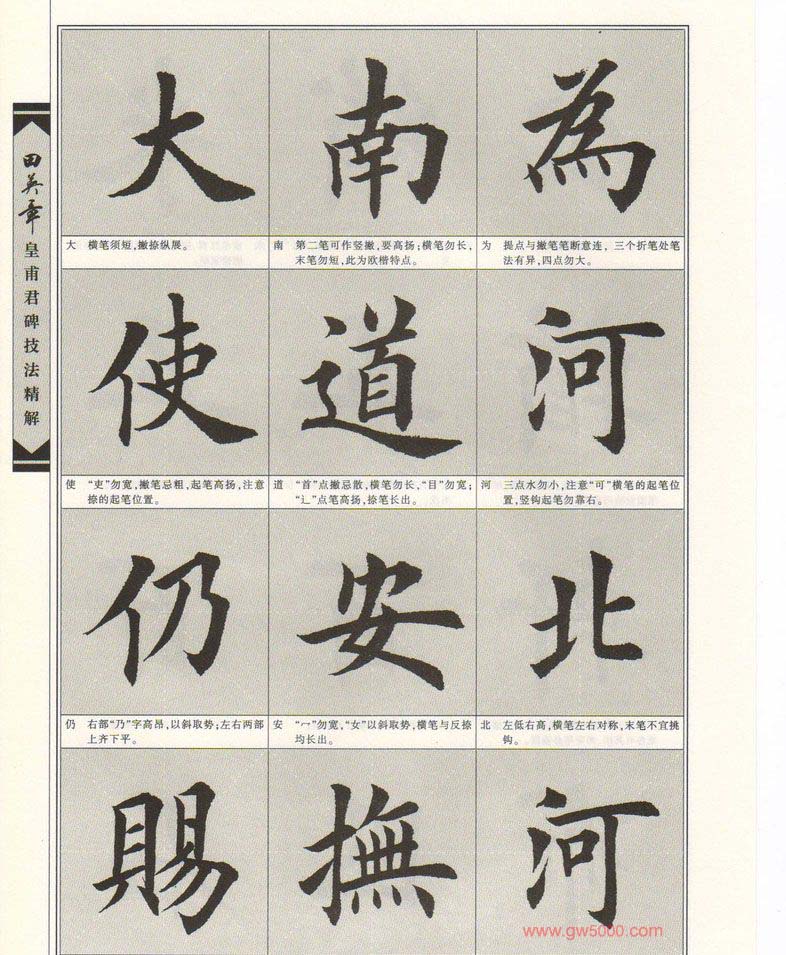 田英章
皇甫君碑技法精解
大
南
為
大 横笔须短,撇捺纵展。
南 第二笔可作竖撇,要高扬;横笔勿长,
末笔勿短,此为欧楷特点。
为 提点与撇笔笔断意连,三个折笔处笔
法有异,四点勿大。
使
道
河
使 “吏”勿宽,撇笔忌粗,起笔高扬,注意
捺的起笔位置。
道 “首”点撇忌散,横笔勿长,“目”勿宽;
“辶”点笔高扬,捺笔长出。
河 三点水勿小,注意“可”横笔的起笔位
置,竖钩起笔勿靠右。
仍
安
北
仍 右部“乃”字高昂,以斜取势;左右两部
上齐下平。
安 “宀”勿宽,“女”以斜取势,横笔与反捺
均长出。
北 左低右高,横笔左右对称,末笔不宜挑
钩。
賜
撫
河
www.gw5000.com